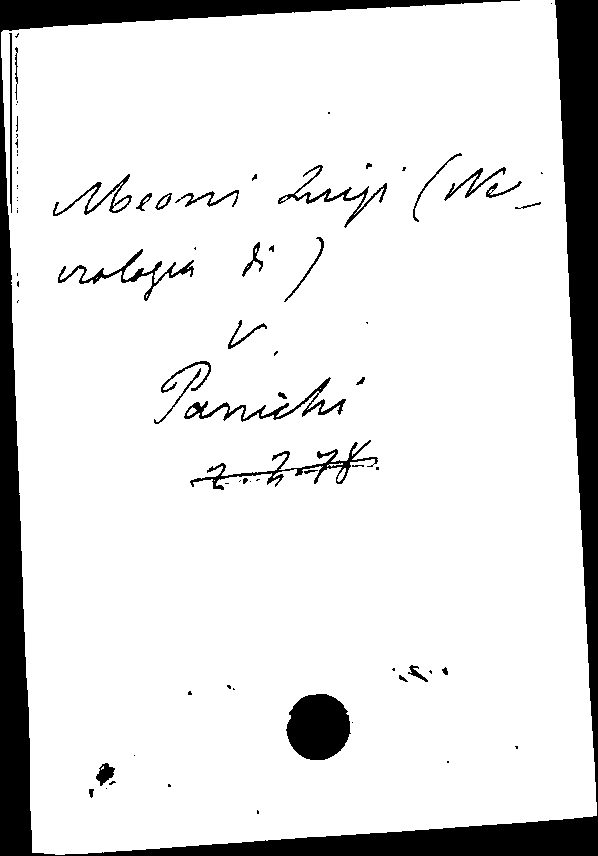 Meoni Luigi (Ne-
crologia di)
V.
Panichi
2.2.78